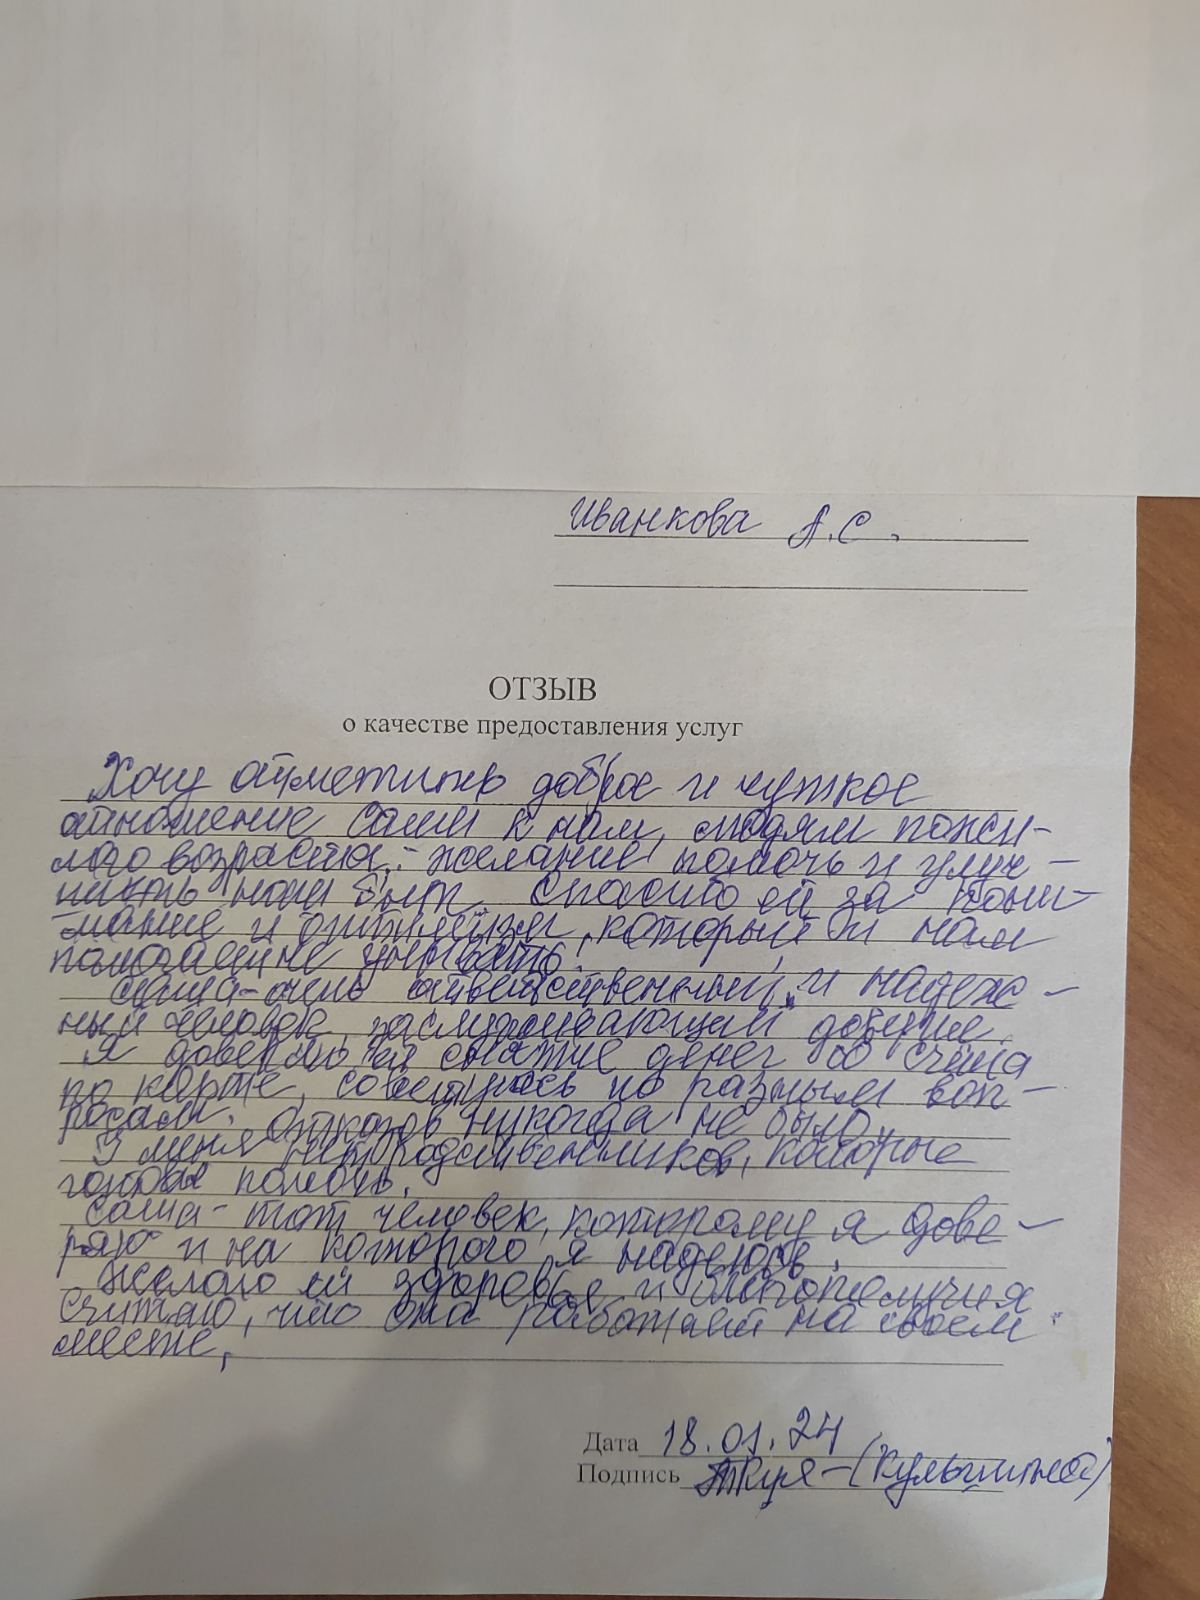 Иванкова А.С.
ОТЗЫВ
о качестве предоставления услуг
Хочу отметить доброе и чуткое
отношение Саши к нам, людям пожи-
лого возраста, желание помочь и улуч-
шить наш быт. Спасибо ей за пони-
мание и оптимизм, который и нам
помогает не унывать.
Саша - очень ответственный и надеж-
ный человек, заслуживающий доверие.
Я доверяю ей снятие денег со счета
по карте, советуюсь по разным воп-
росам. Отказов никогда не было.
У меня нет родственников, которые
готовы помочь.
Саша - тот человек, которому я дове-
ряю и на которого я надеюсь.
Желаю ей здоровья и благополучия
Считаю, что она работает на своем
месте.
Дата 18.01.24
Подпись